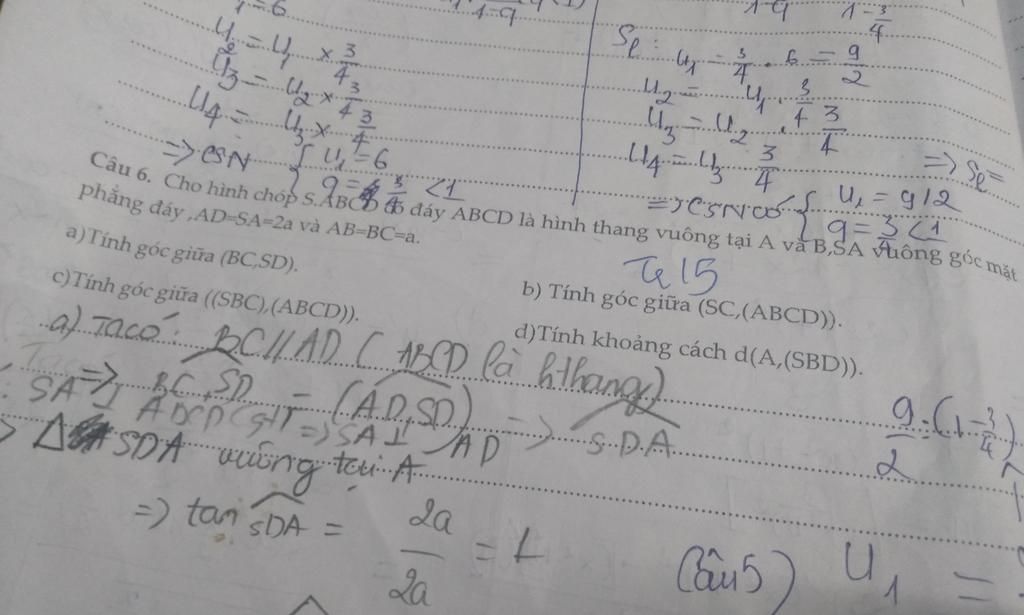 = 6
1 - q
1 - 3/4
U2 = U1 × 3/4
U3 = U2 × 3/4
U4 = U3 × 3/4
=> CSN { U1 = 6
q = 3/4 < 1
Sl : U1 = 3/4 . 6 = 9/2
U2 = U1 . 3/4
U3 = U2 . 3/4
U4 = U3 3/4 => Sl =
=> CSN có { U1 = 9/2
q = 3/4 < 1
Câu 6. Cho hình chóp S.ABCD có đáy ABCD là hình thang vuông tại A và B,SA vuông góc mặt
phẳng đáy ,AD=SA=2a và AB=BC=a.
a)Tính góc giữa (BC,SD).
b) Tính góc giữa (SC,(ABCD)).
c)Tính góc giữa ((SBC),(ABCD)).
d)Tính khoảng cách d(A,(SBD)).
a) Ta có: BC // AD ( ABCD là hthang)
=> BC,SD = (AD,SD) => SDA
SA ⊥ ABCD (gt) => SA ⊥ AD
Δ SDA vuông tại A
=> tan SDA = 2a/2a = 1
9/2 : (1 - 3/4)
(Câu 5) U1 =